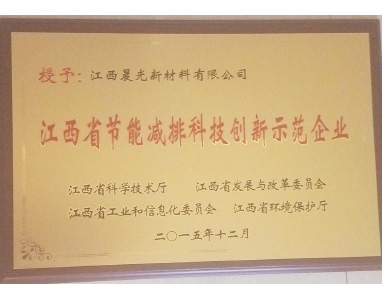 授予：江西晨光新材料有限公司
江西省节能减排科技创新示范企业
江西省科学技术厅 江西省发展与改革委员会
江西省工业和信息化委员会 江西省环境保护厅
二〇一五年十二月